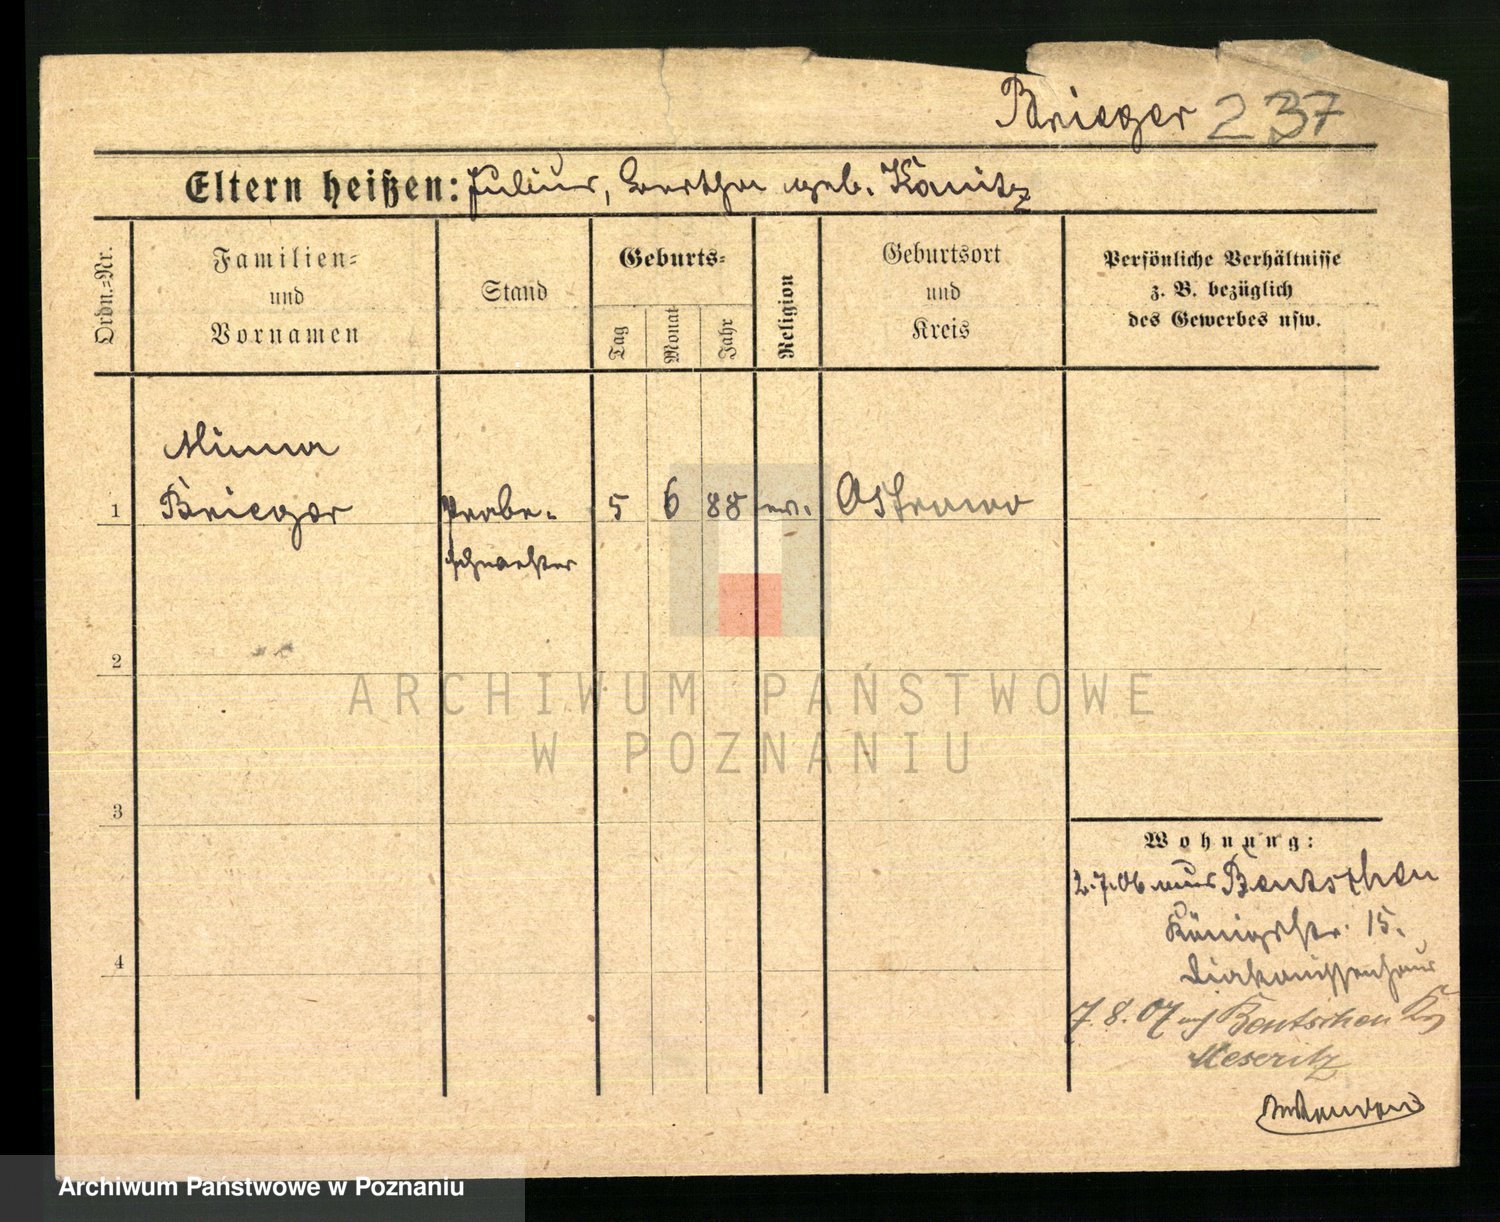 Brieger 237
Eltern heißen: Julius, Bertha geb. Kanitz
Ordn.=Nr.
Familien=
und
Vornamen
Stand
Geburts=
Tag
Monat
Jahr
Religion
Geburtsort
und
Kreis
Persönliche Verhältnisse
z. B. bezüglich
des Gewerbes usw.
Minna
1 Brieger Probe- 5 6 88 ev. Ostrowo
schwester
2
ARCHIWUM PAŃSTWOWE
W POZNANIU
3
Wohnung:
2.7.06 aus Bentschen
Königstr. 15.
4
Diakonissenhaus
7.8.07 nach Bentschen Kr
Meseritz
Archiwum Państwowe w Poznaniu